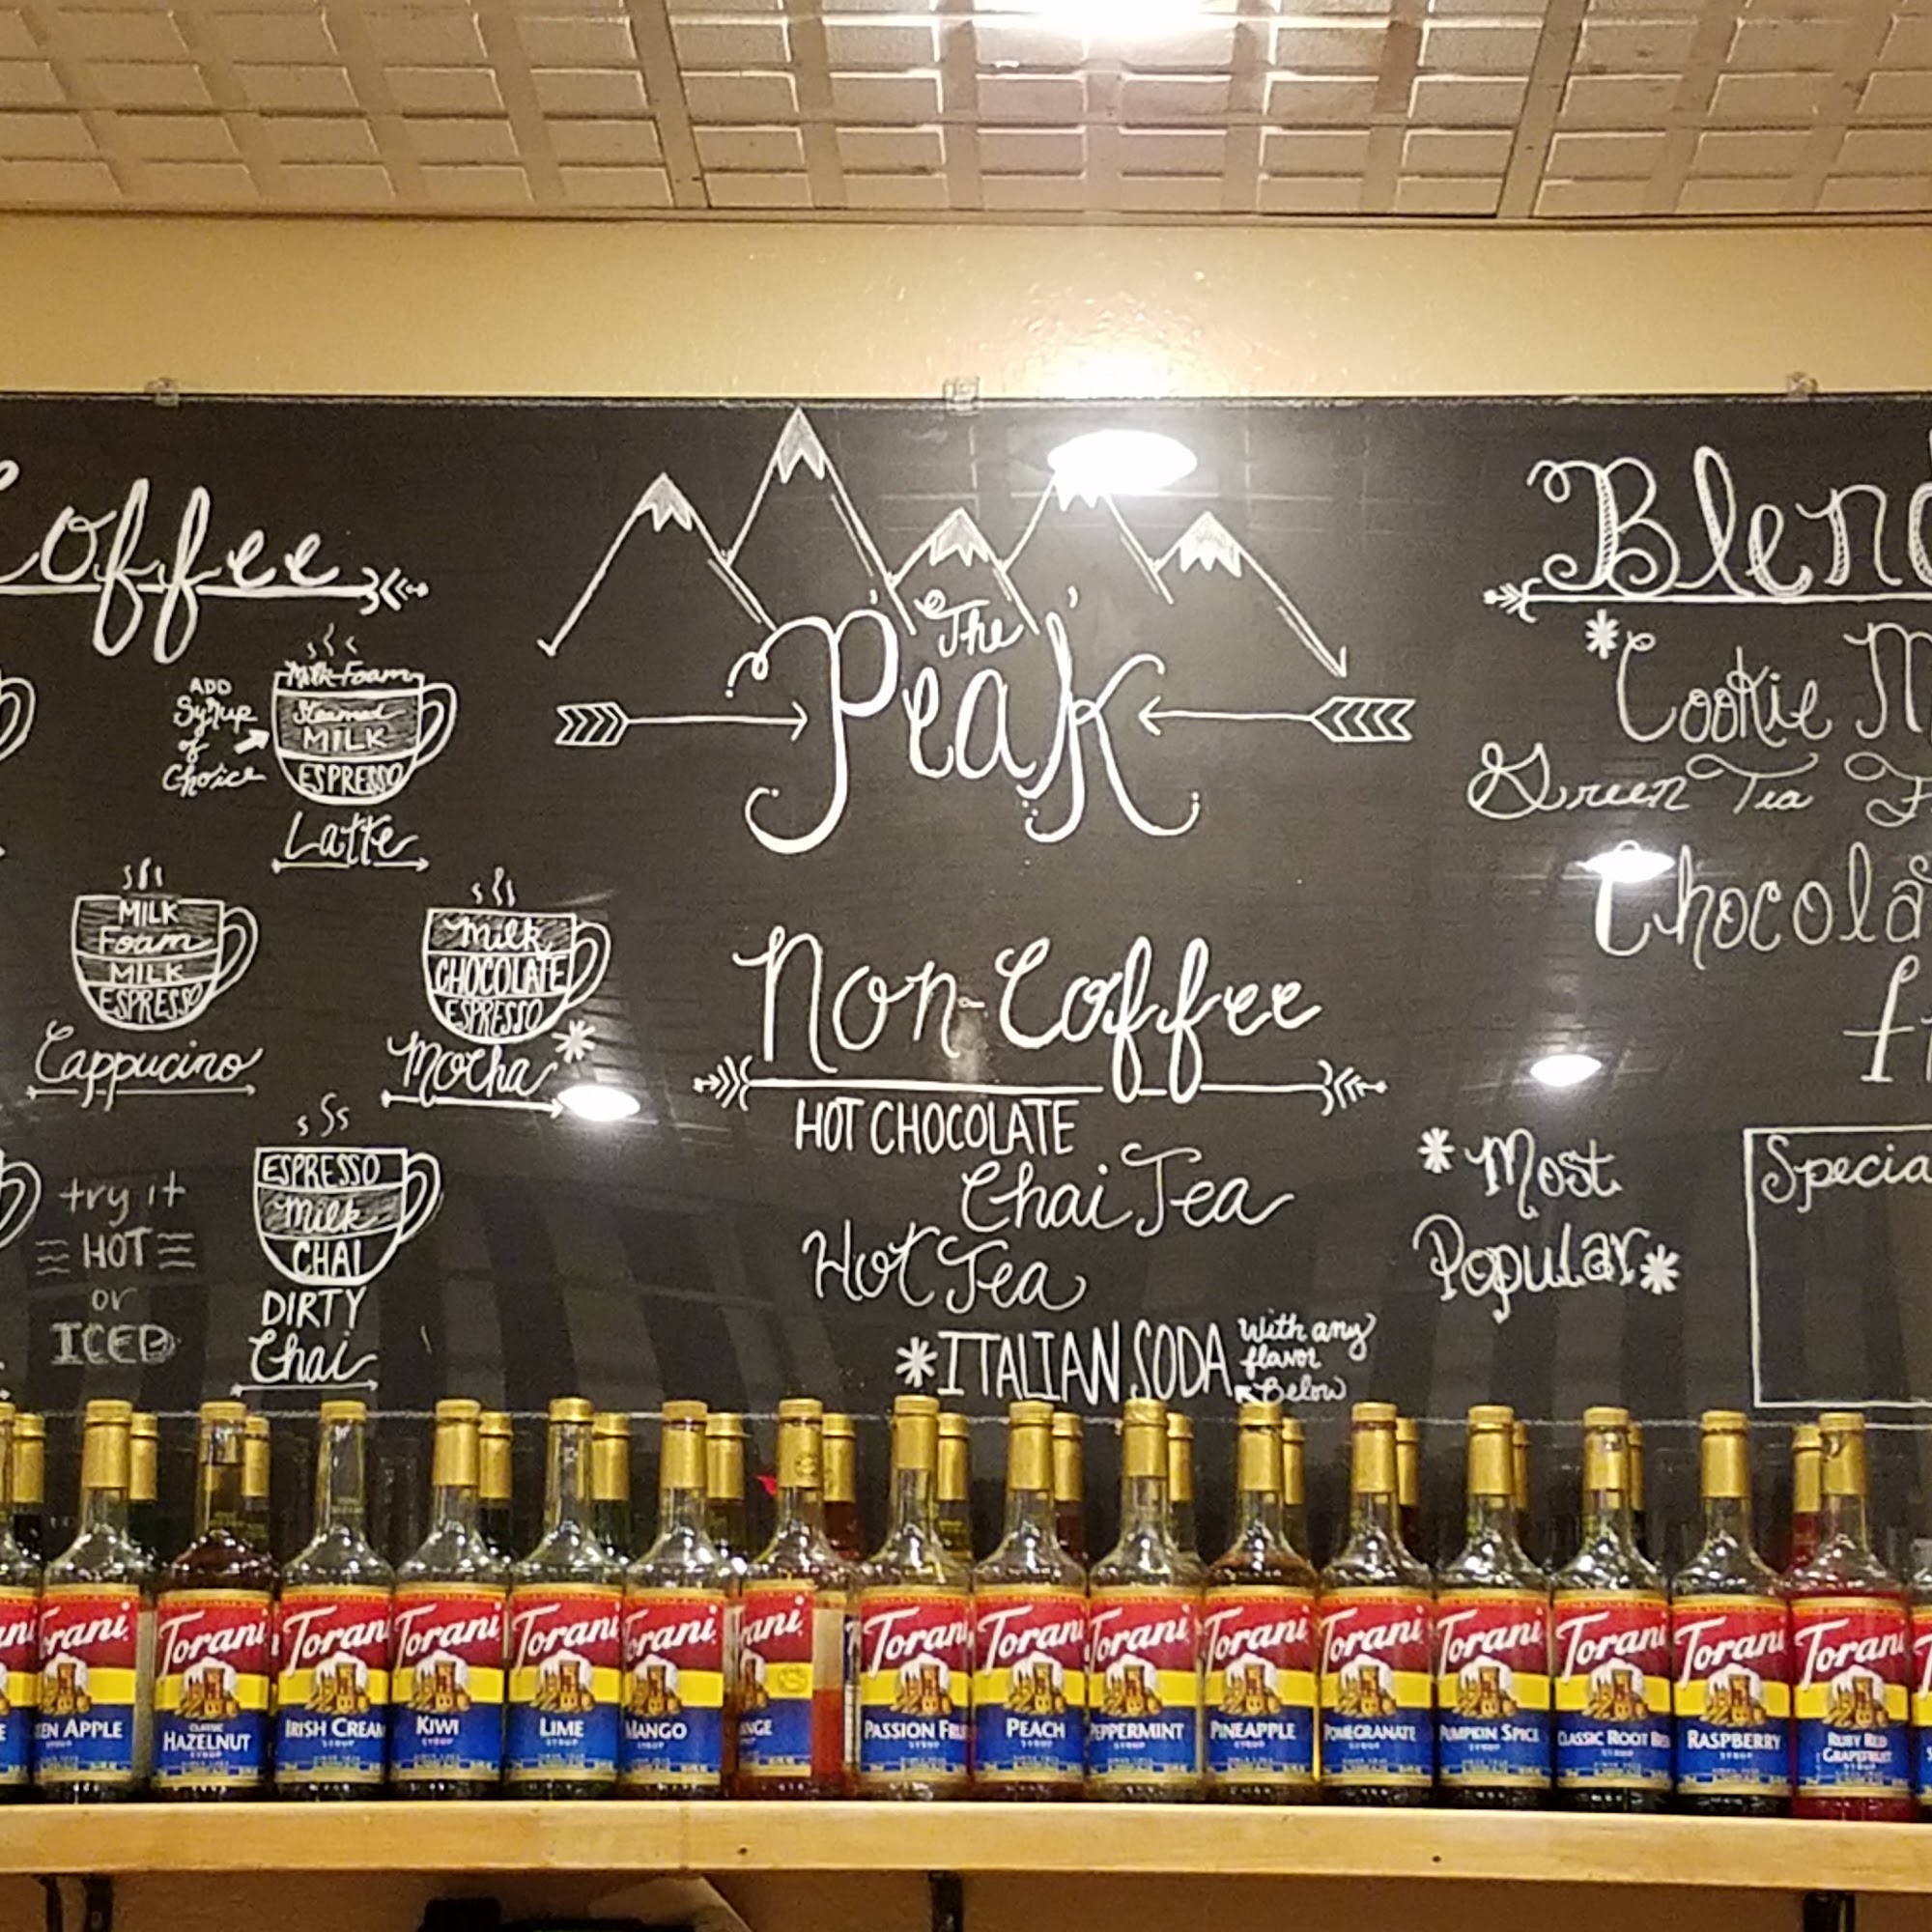 Coffee
ADD
Syrup
of
Choice
Milk Foam
Steamed
MILK
ESPRESSO
Latte
MILK
Foam
MILK
ESPRESSO
Cappucino
Milk
CHOCOLATE
ESPRESSO
Mocha*
try it
HOT
or
ICED
ESPRESSO
Milk
CHAI
DIRTY
Chai
The
Peak
Non-Coffee
HOT CHOCOLATE
Chai Tea
Hot Tea
*ITALIAN SODA
With any
flavor
Below
Blend
*Cookie M
Green Tea F
Chocola
fr
*Most
Popular*
Specia
Torani
EN APPLE
Torani
CLASSIC
HAZELNUT
SYRUP
Torani
IRISH CREAM
SYRUP
Torani
KIWI
SYRUP
Torani
LIME
SYRUP
Torani
MANGO
SYRUP
rani
NGE
Torani
PASSION FRU
SYRUP
Torani
PEACH
SYRUP
Torani
PEPPERMINT
SYRUP
Torani
PINEAPPLE
SYRUP
Torani
POMEGRANATE
SYRUP
Torani
PUMPKIN SPICE
SYRUP
Torani
CLASSIC ROOT BEER
SYRUP
Torani
RASPBERRY
SYRUP
Torani
RUBY RED
GRAPEFRUIT
SYRUP